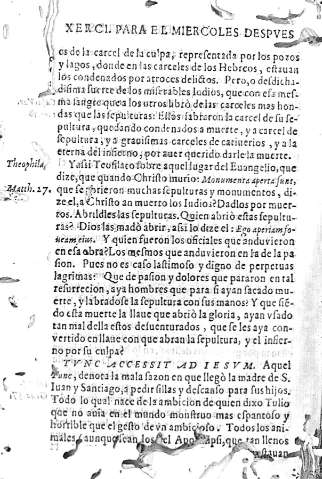 XERCI. PARA EL MIERCOLES DESPVES
es de la carcel de la culpa, representada por los pozos
y lagos, donde en las carceles de los Hebreos, estauan
los condenados por atroces delictos. Pero, o desdicha-
dissima suerte de los miserables Iudios, que con esa mes-
ma sangre que a los otros librò de las carceles mas hon-
das que las sepulturas: Ellos fabraron la carcel de su se-
pultura, quedando condenados a muerte, y a carcel de
sepultura, y a grauissimas carceles de catiuerios, y a la
eterna del infierno, por auer querido darle la muerte.
Theophila.
Y assi Teofilato sobre aquel lugar del Euangelio, que
dize, que quando Christo murio: Monumenta aperta sunt,
Matth. 27.
que se abrieron muchas sepulturas y monumentos, di-
ze el, a Christo an muerto los Iudios? Dadlos por muer-
tos. Abrildles las sepulturas. Quien abriò estas sepultu-
ras? Dios las madò abrir, assi lo dize el: Ego aperiam fo-
ueam eius. Y quien fueron los oficiales que anduuieron
en esa obra? Los mesmos que anduuieron en la de la pa-
sion. Pues no es caso lastimoso y digno de perpetuas
lagrimas? Que de pasion y dolores que pararon en tal
resurrecion, aya hombres que para si ayan sacado mu-
erte, y labradose la sepultura con sus manos? Y que siē-
do esta muerte la llaue que abriò la gloria, ayan vsado
tan mal della estos desuenturados, que se les aya con-
vertido en llaue con que abran la sepultura, y el infier-
no por su culpa?
TVNC ACCESSIT AD IESVM. Aquel
Tunc, denota la mala sazon en que llegò la madre de S.
Iuan y Santiago, a pedir sillas y descanso para sus hijos.
Todo lo qual nace de la ambicion de quien dixo Tulio
que no auia en el mundo monstruo mas espantoso y
horrible que el gesto de vn ambicioso. Todos los ani-
males, aunque sean los del Apocalipsi, que tan llenos
estauan